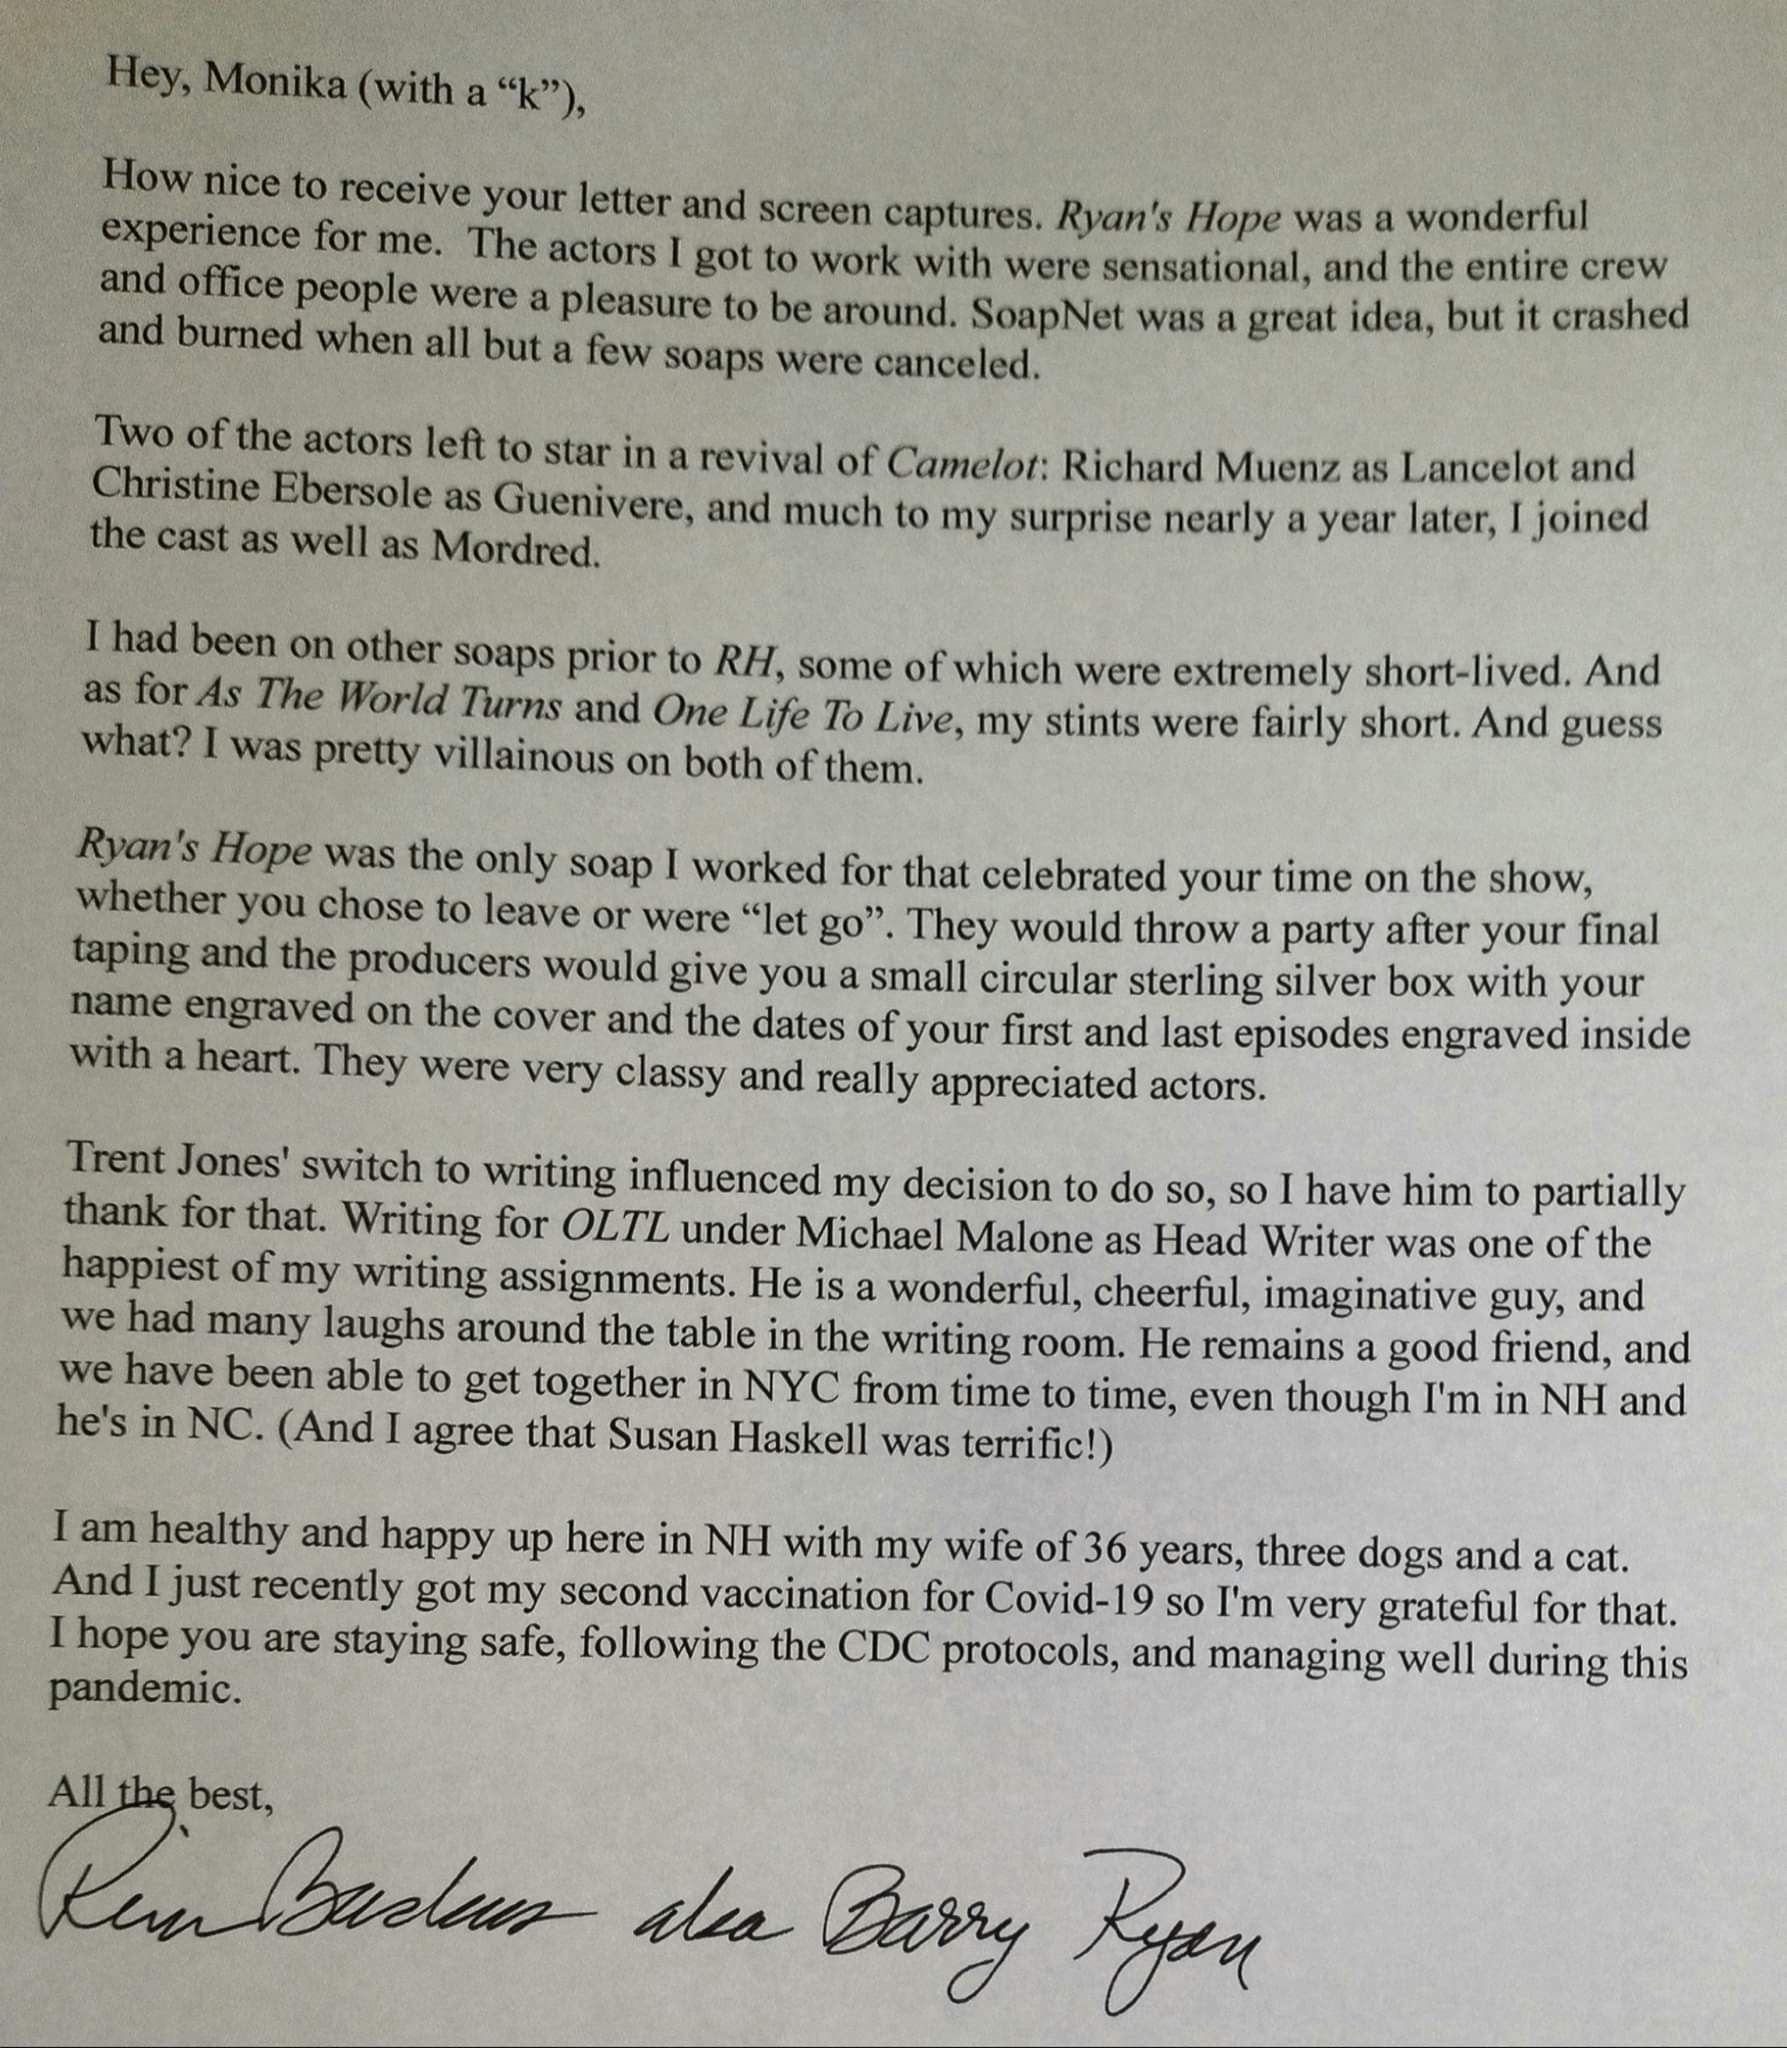 Hey, Monika (with a “k”),
How nice to receive your letter and screen captures. Ryan's Hope was a wonderful
experience for me.  The actors I got to work with were sensational, and the entire crew
and office people were a pleasure to be around. SoapNet was a great idea, but it crashed
and burned when all but a few soaps were canceled.
Two of the actors left to star in a revival of Camelot: Richard Muenz as Lancelot and
Christine Ebersole as Guenivere, and much to my surprise nearly a year later, I joined
the cast as well as Mordred.
I had been on other soaps prior to RH, some of which were extremely short-lived. And
as for As The World Turns and One Life To Live, my stints were fairly short. And guess
what? I was pretty villainous on both of them.
Ryan's Hope was the only soap I worked for that celebrated your time on the show,
whether you chose to leave or were “let go”. They would throw a party after your final
taping and the producers would give you a small circular sterling silver box with your
name engraved on the cover and the dates of your first and last episodes engraved inside
with a heart. They were very classy and really appreciated actors.
Trent Jones' switch to writing influenced my decision to do so, so I have him to partially
thank for that. Writing for OLTL under Michael Malone as Head Writer was one of the
happiest of my writing assignments. He is a wonderful, cheerful, imaginative guy, and
we had many laughs around the table in the writing room. He remains a good friend, and
we have been able to get together in NYC from time to time, even though I'm in NH and
he's in NC. (And I agree that Susan Haskell was terrific!)
I am healthy and happy up here in NH with my wife of 36 years, three dogs and a cat.
And I just recently got my second vaccination for Covid-19 so I'm very grateful for that.
I hope you are staying safe, following the CDC protocols, and managing well during this
pandemic.
All the best,
aka Barry Ryan